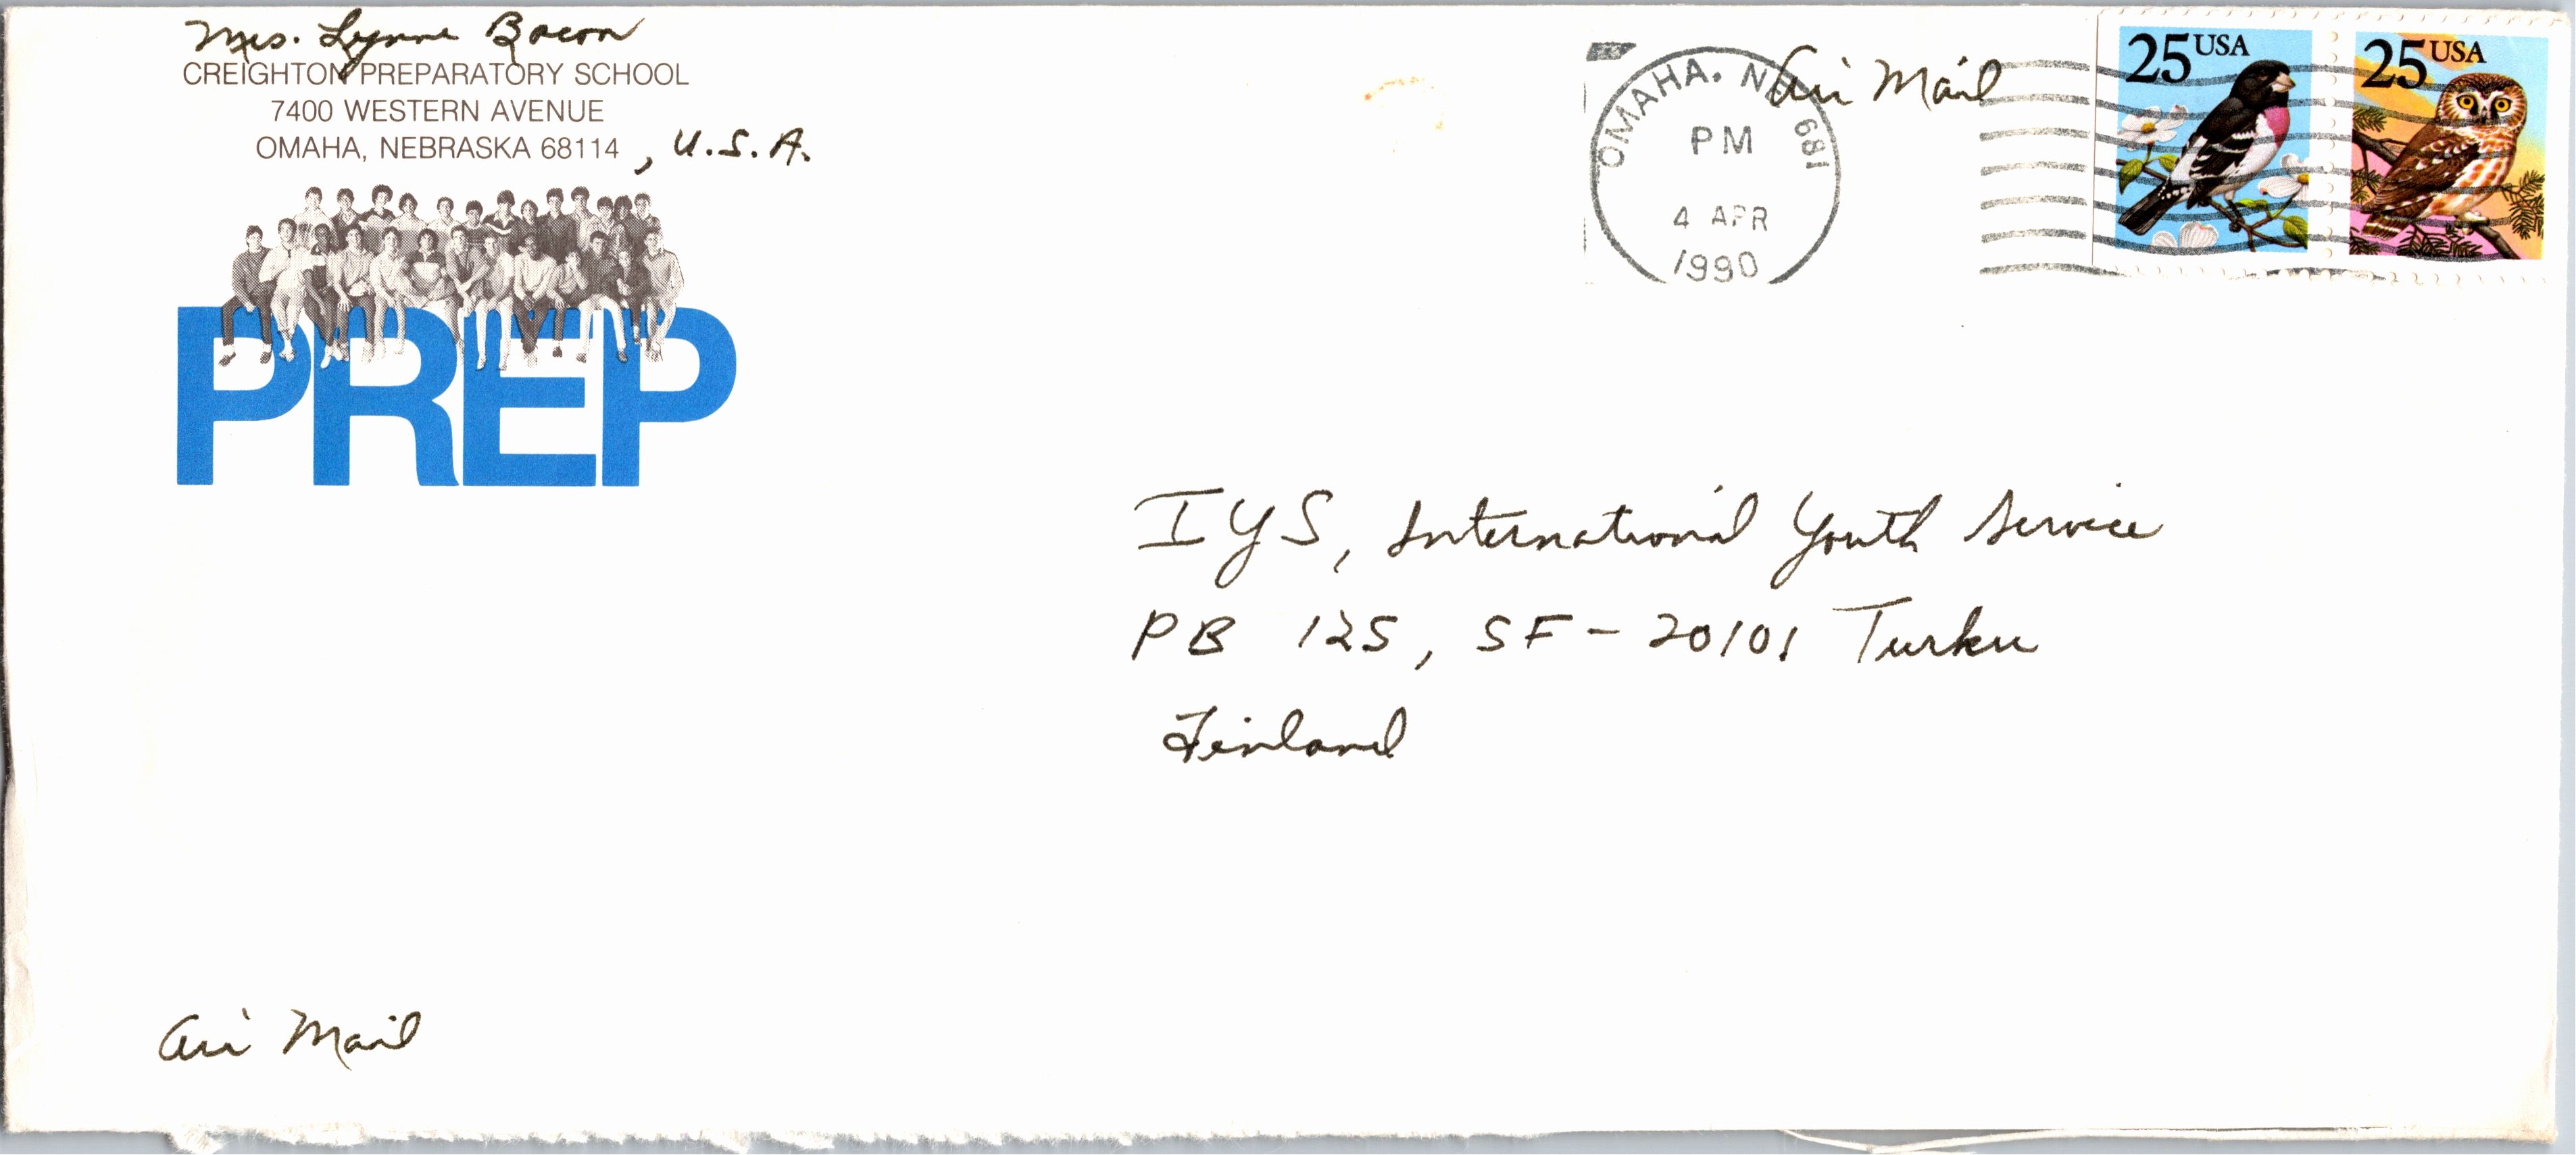 Mrs. Lynne Bacon
CREIGHTON PREPARATORY SCHOOL
7400 WESTERN AVENUE
OMAHA, NEBRASKA 68114, U.S.A.
PREP
OMAHA. NE 681
PM
4 APR
1990
Air Mail
25 USA
25 USA
IYS, International Youth Service
PB 125, SF-20101 Turku
Finland
Air Mail